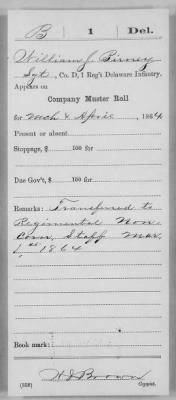 B | 1 | Del.
William J. Birney
Sgt, Co. D, 1 Reg't Delaware Infantry.
Appears on
Company Muster Roll
for Mch & April, 1864
Present or absent
Stoppage, $ 100 for
Due Gov't, $ 100 for
Remarks: Transferred to
Regimental Non
Com. Staff Mar.
1st 1864
Book mark:
(358)
Copyist.